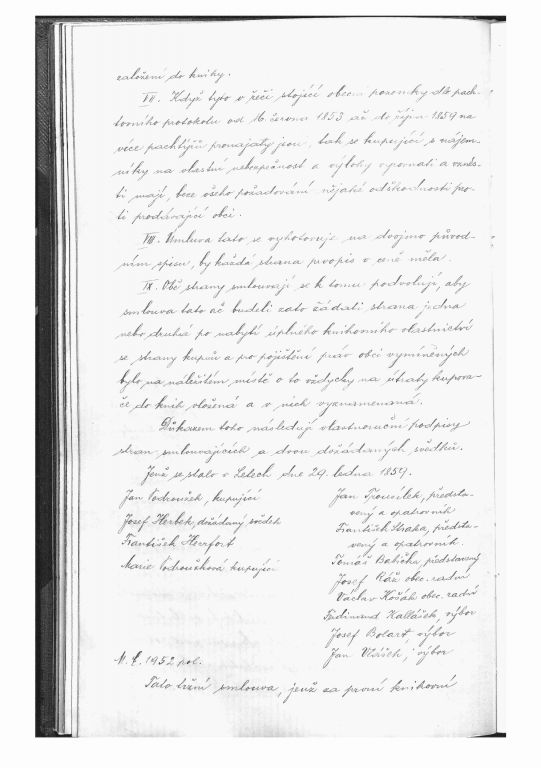 založení do knihy.
VII. Když tyto v řeči stojící obecní pozemky dle pach-
tovního protokolu od 16. června 1853 až do října 1859 na
více pachtýřů pronajaty jsou, tak se kupující s nájem-
níky na vlastní nebezpečnost a výlohy vyrovnati a vznés-
ti mají, beze všeho požadování nějaké odškodnosti pro-
ti prodávající obci.
VIII. Smlouva tato se vyhotovuje na dvojmo původ-
ním spisu, by každá strana prvopis v ceně měla.
IX. Obě strany smlouvají se k tomu podvolují, aby
smlouva tato ač budeli zato žádati strana jedna
nebo druhá po nabytí úplného knihovního vlastnictví
se strany kupců a po pojištění práv obci vymíněných
bylo na náležitém místě o to vždycky na útraty kupova-
če do knih vložená a v nich vyznamenaná.
Důkazem toho následují vlastnoruční podpisy
stran smlouvajících a dvou dožádaných svědků.
Jenž se stalo v Letech dne 29. ledna 1859.
Jan Vodroužek, kupující
Josef Herbek, dožádaný svědek
František Heerfort
Marie Vodroužková kupující
Jan Trousílek, předsta-
vený a opatrovník
František Straka, předsta-
vený a opatrovník.
Tomáš Babička představený
Josef Ráž obec. radní
Václav Košák obec. radní
Ferdinand Kallášek, výbor
Josef Bolart, výbor
Jan Vlášek, výbor
N. E. 1952 pol.
Tato tržní smlouva, jenž za první knihovní